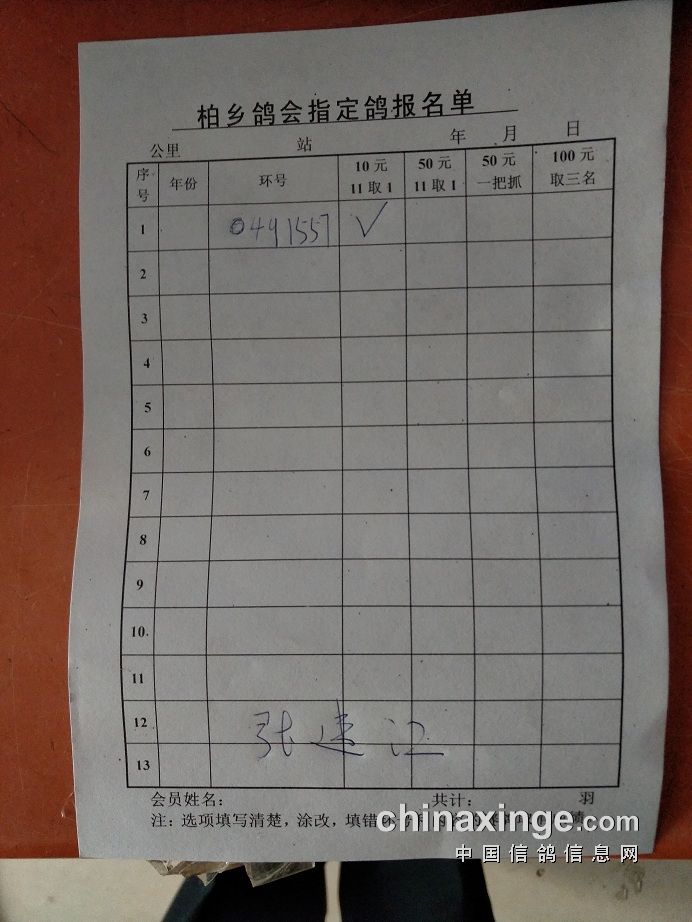 柏乡鸽会指定鸽报名单
公里 站 年 月 日
序号 年份 环号 10元 11取1 50元 11取1 50元 一把抓 100元 取三名
1 0491557 ✓
2
3
4
5
6
7
8
9
10
11
12 张建江
13
会员姓名： 共计： 羽
注：选项填写清楚，涂改，填错环
chinaxinge.com
中国信鸽信息网